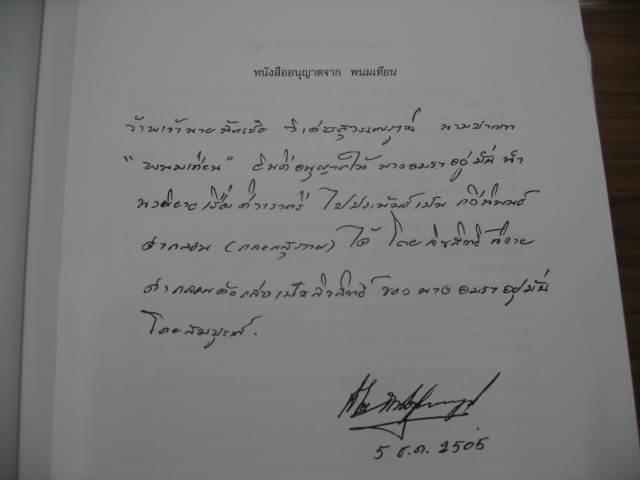 หนังสืออนุญาตจาก พนมเทียน
ข้าพเจ้านายฉัตรชัย วิเศษสุวรรณภูมิ นามปากกา
"พนมเทียน" ยินดีอนุญาตให้ นางอมรา อยู่มั่น นำ
นวนิยายเรื่อง ไปประพันธ์เป็น กวีนิพนธ์
คำกลอน (กลอนสุภาพ) ได้ โดยลิขสิทธิ์
คำกลอนดังกล่าวเป็นลิขสิทธิ์ ของ นาง อมรา อยู่มั่น
โดยสมบูรณ์.
5 ธ.ค. 2505